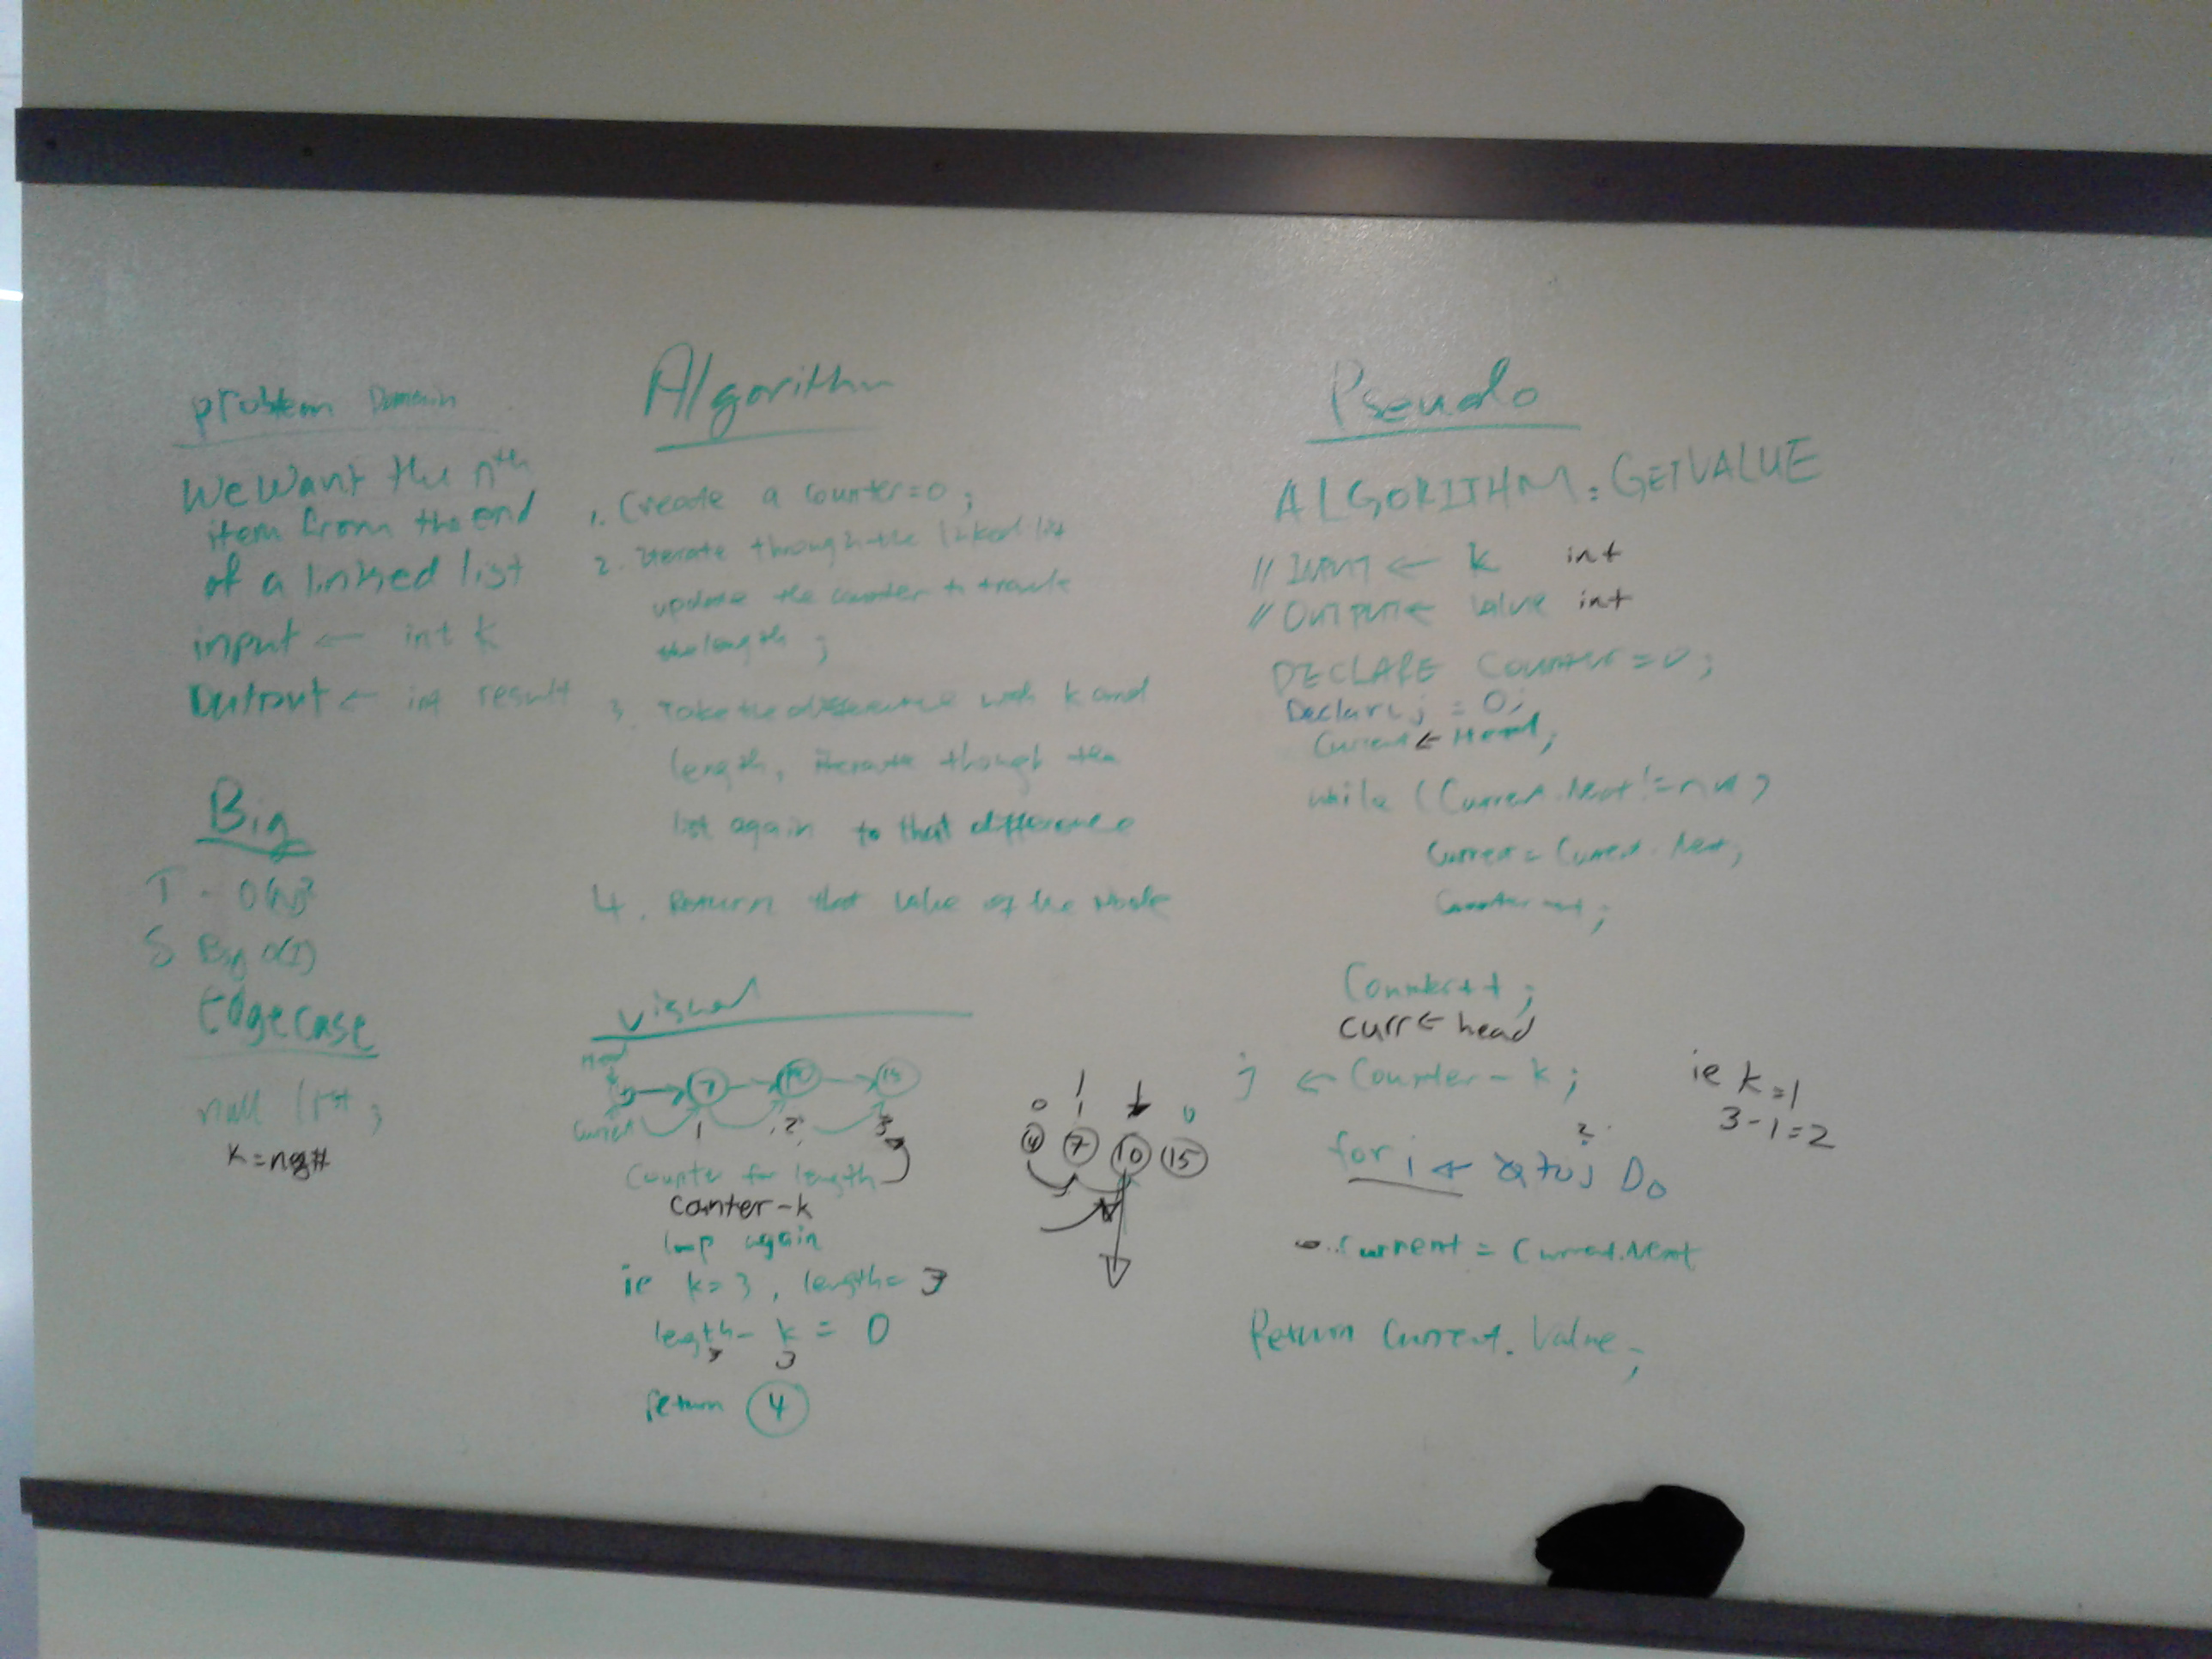 Problem Domain
We Want the nth
item from the end
of a linked list
input ← int k
Output ← int result
Big
T - O(N)²
S Big O(1)
Edgecase
null list;
K = neg#
Algorithm
1. Create a counter=0;
2. iterate through the linked list
update the counter to
the length;
3. Take the difference with k and
length, iterate though the
list again to that difference
4. Return that value of the Node
Visual
Head
7 10 15
Current 1 2 3
Counter for length
counter-k
loop again
ie k=3, length=3
length - k = 0
3 3
return 4
0 1 0
4 7 10 15
Pseudo
ALGORITHM: GETVALUE
// INPUT ← k int
// OUTPUT ← value int
DECLARE Counter = 0;
Declare j = 0;
Current ← Head;
while (Current.Next != null)
Current = Current.Next;
Counter++;
Counter++;
curr ← head
j ← Counter - k;
ie k=1
3-1=2
2
for i ← to j Do
Current = Current.Next
Return Current.Value;